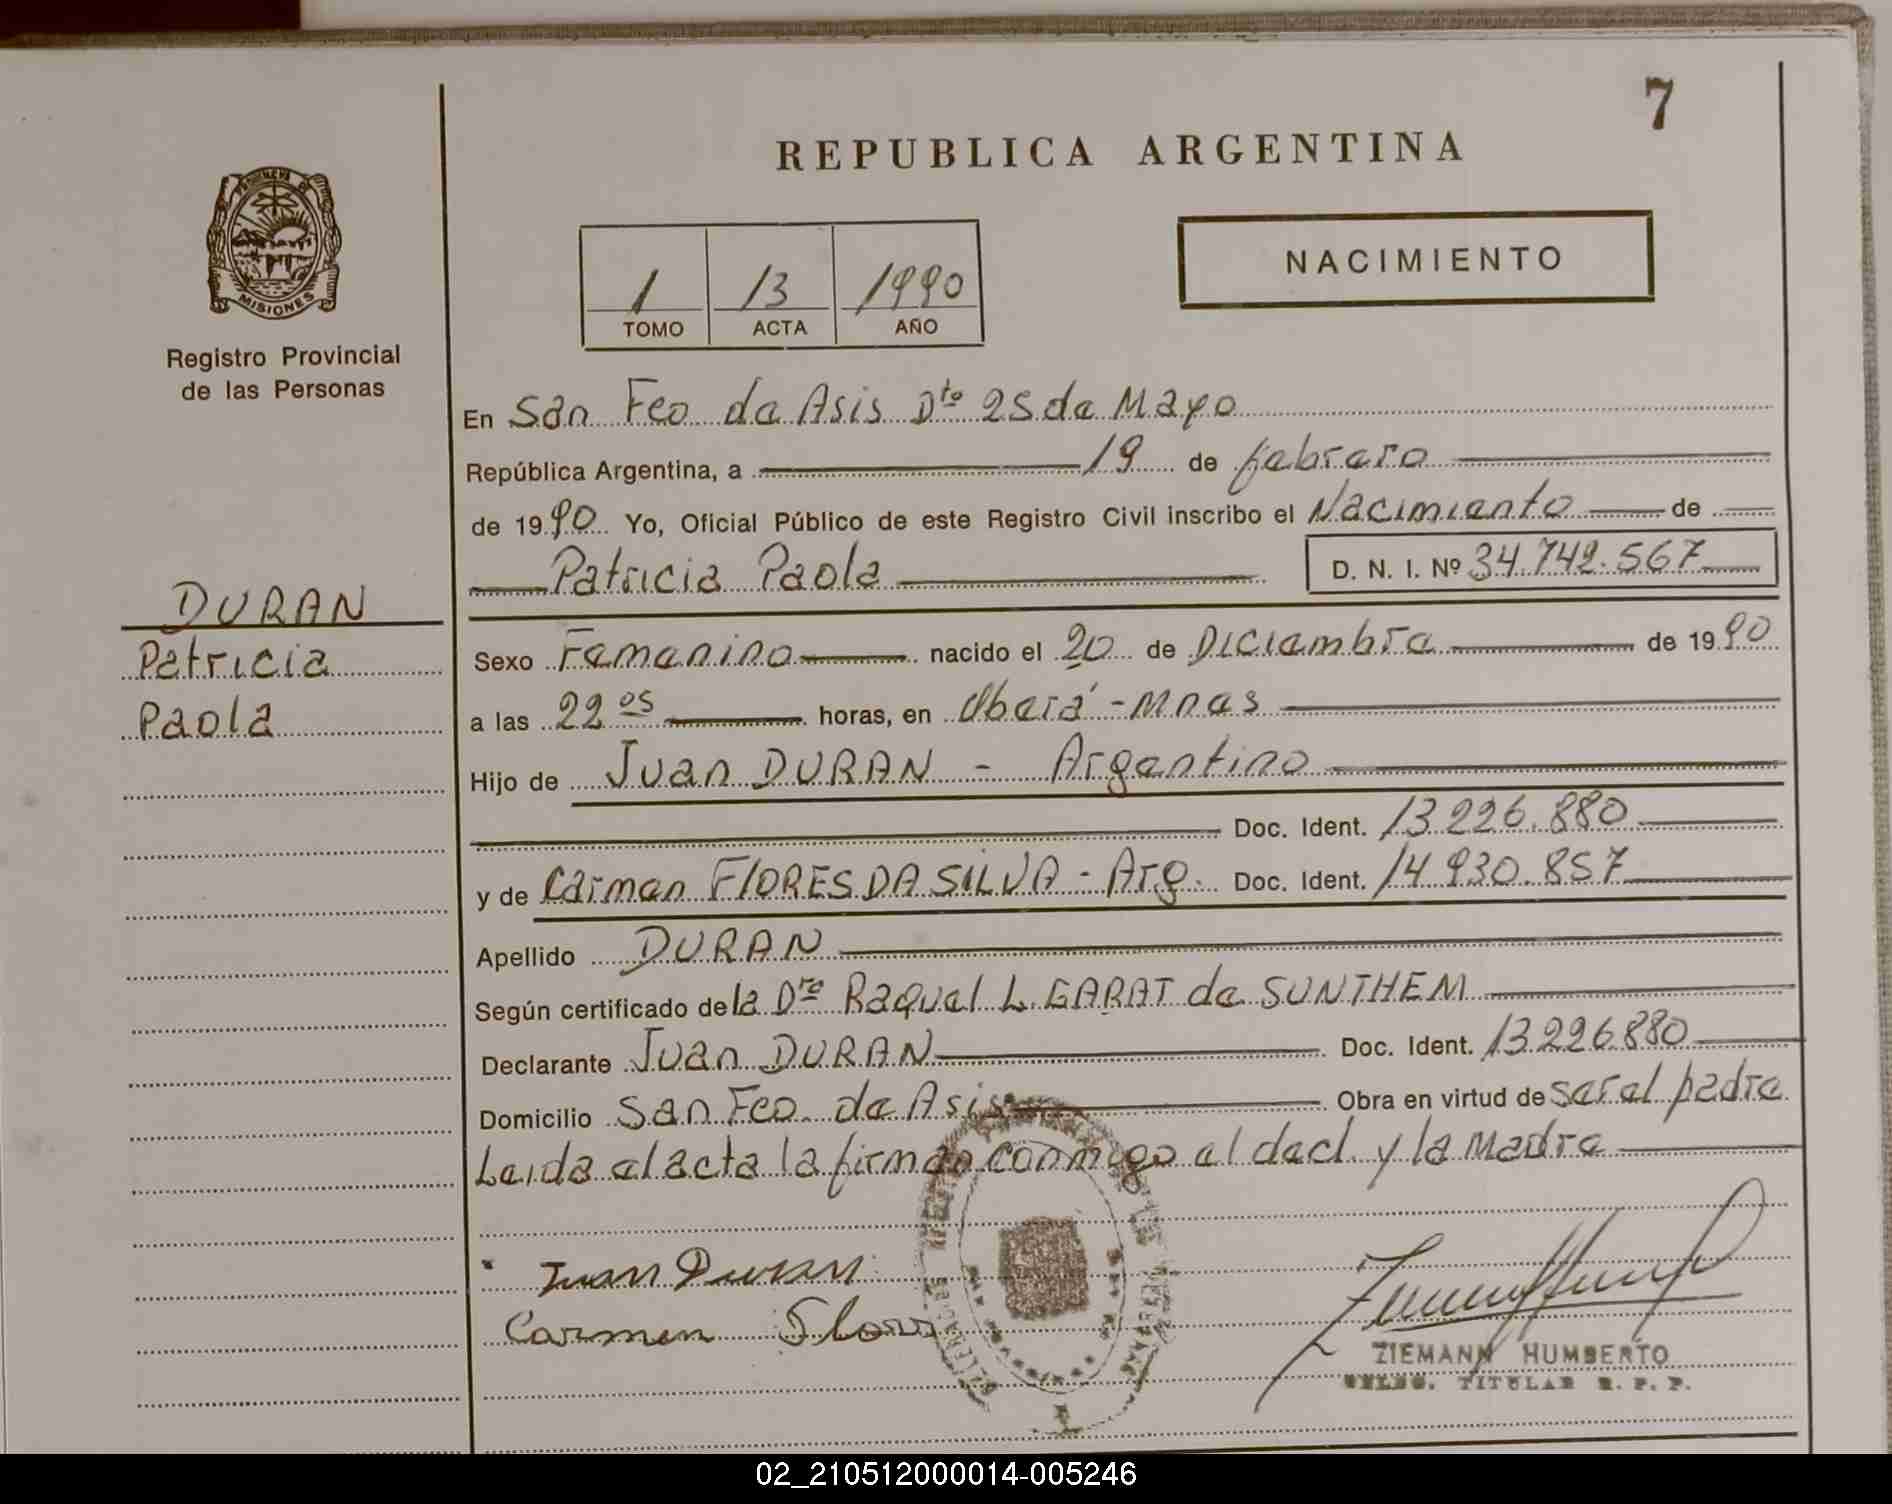 7
REPUBLICA ARGENTINA
PROVINCIA DE
MISIONES
Registro Provincial
de las Personas
NACIMIENTO
1 13 1990
TOMO ACTA AÑO
En San Fco de Asis Dto 25 de Mayo
República Argentina, a 19 de febrero
de 1990 Yo, Oficial Público de este Registro Civil inscribo el Nacimiento de
Patricia Paola D. N. I. Nº 34.742.567
DURAN
Patricia
Paola
Sexo Femenino nacido el 20 de Diciembre de 1990
a las 22 05 horas, en Oberá - Mnes
Hijo de Juan DURAN - Argentino
Doc. Ident. 13.226.880
y de Carmen FLORES DA SILVA - Arg. Doc. Ident. 14.930.857
Apellido DURAN
Según certificado de la Dra Raquel L. GARAT de SUNTHEM
Declarante Juan DURAN Doc. Ident. 13.226.880
Domicilio San Fco. de Asis Obra en virtud de ser el padre
Leida el acta la firman conmigo el decl. y la Madre
Juan Duran
Carmen Flores
ZIEMANN HUMBERTO
DELEG. TITULAR R. P. P.
02_210512000014-005246